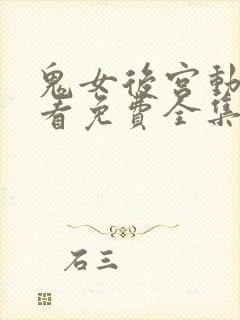 鬼女後宮動
看免費全集
石三